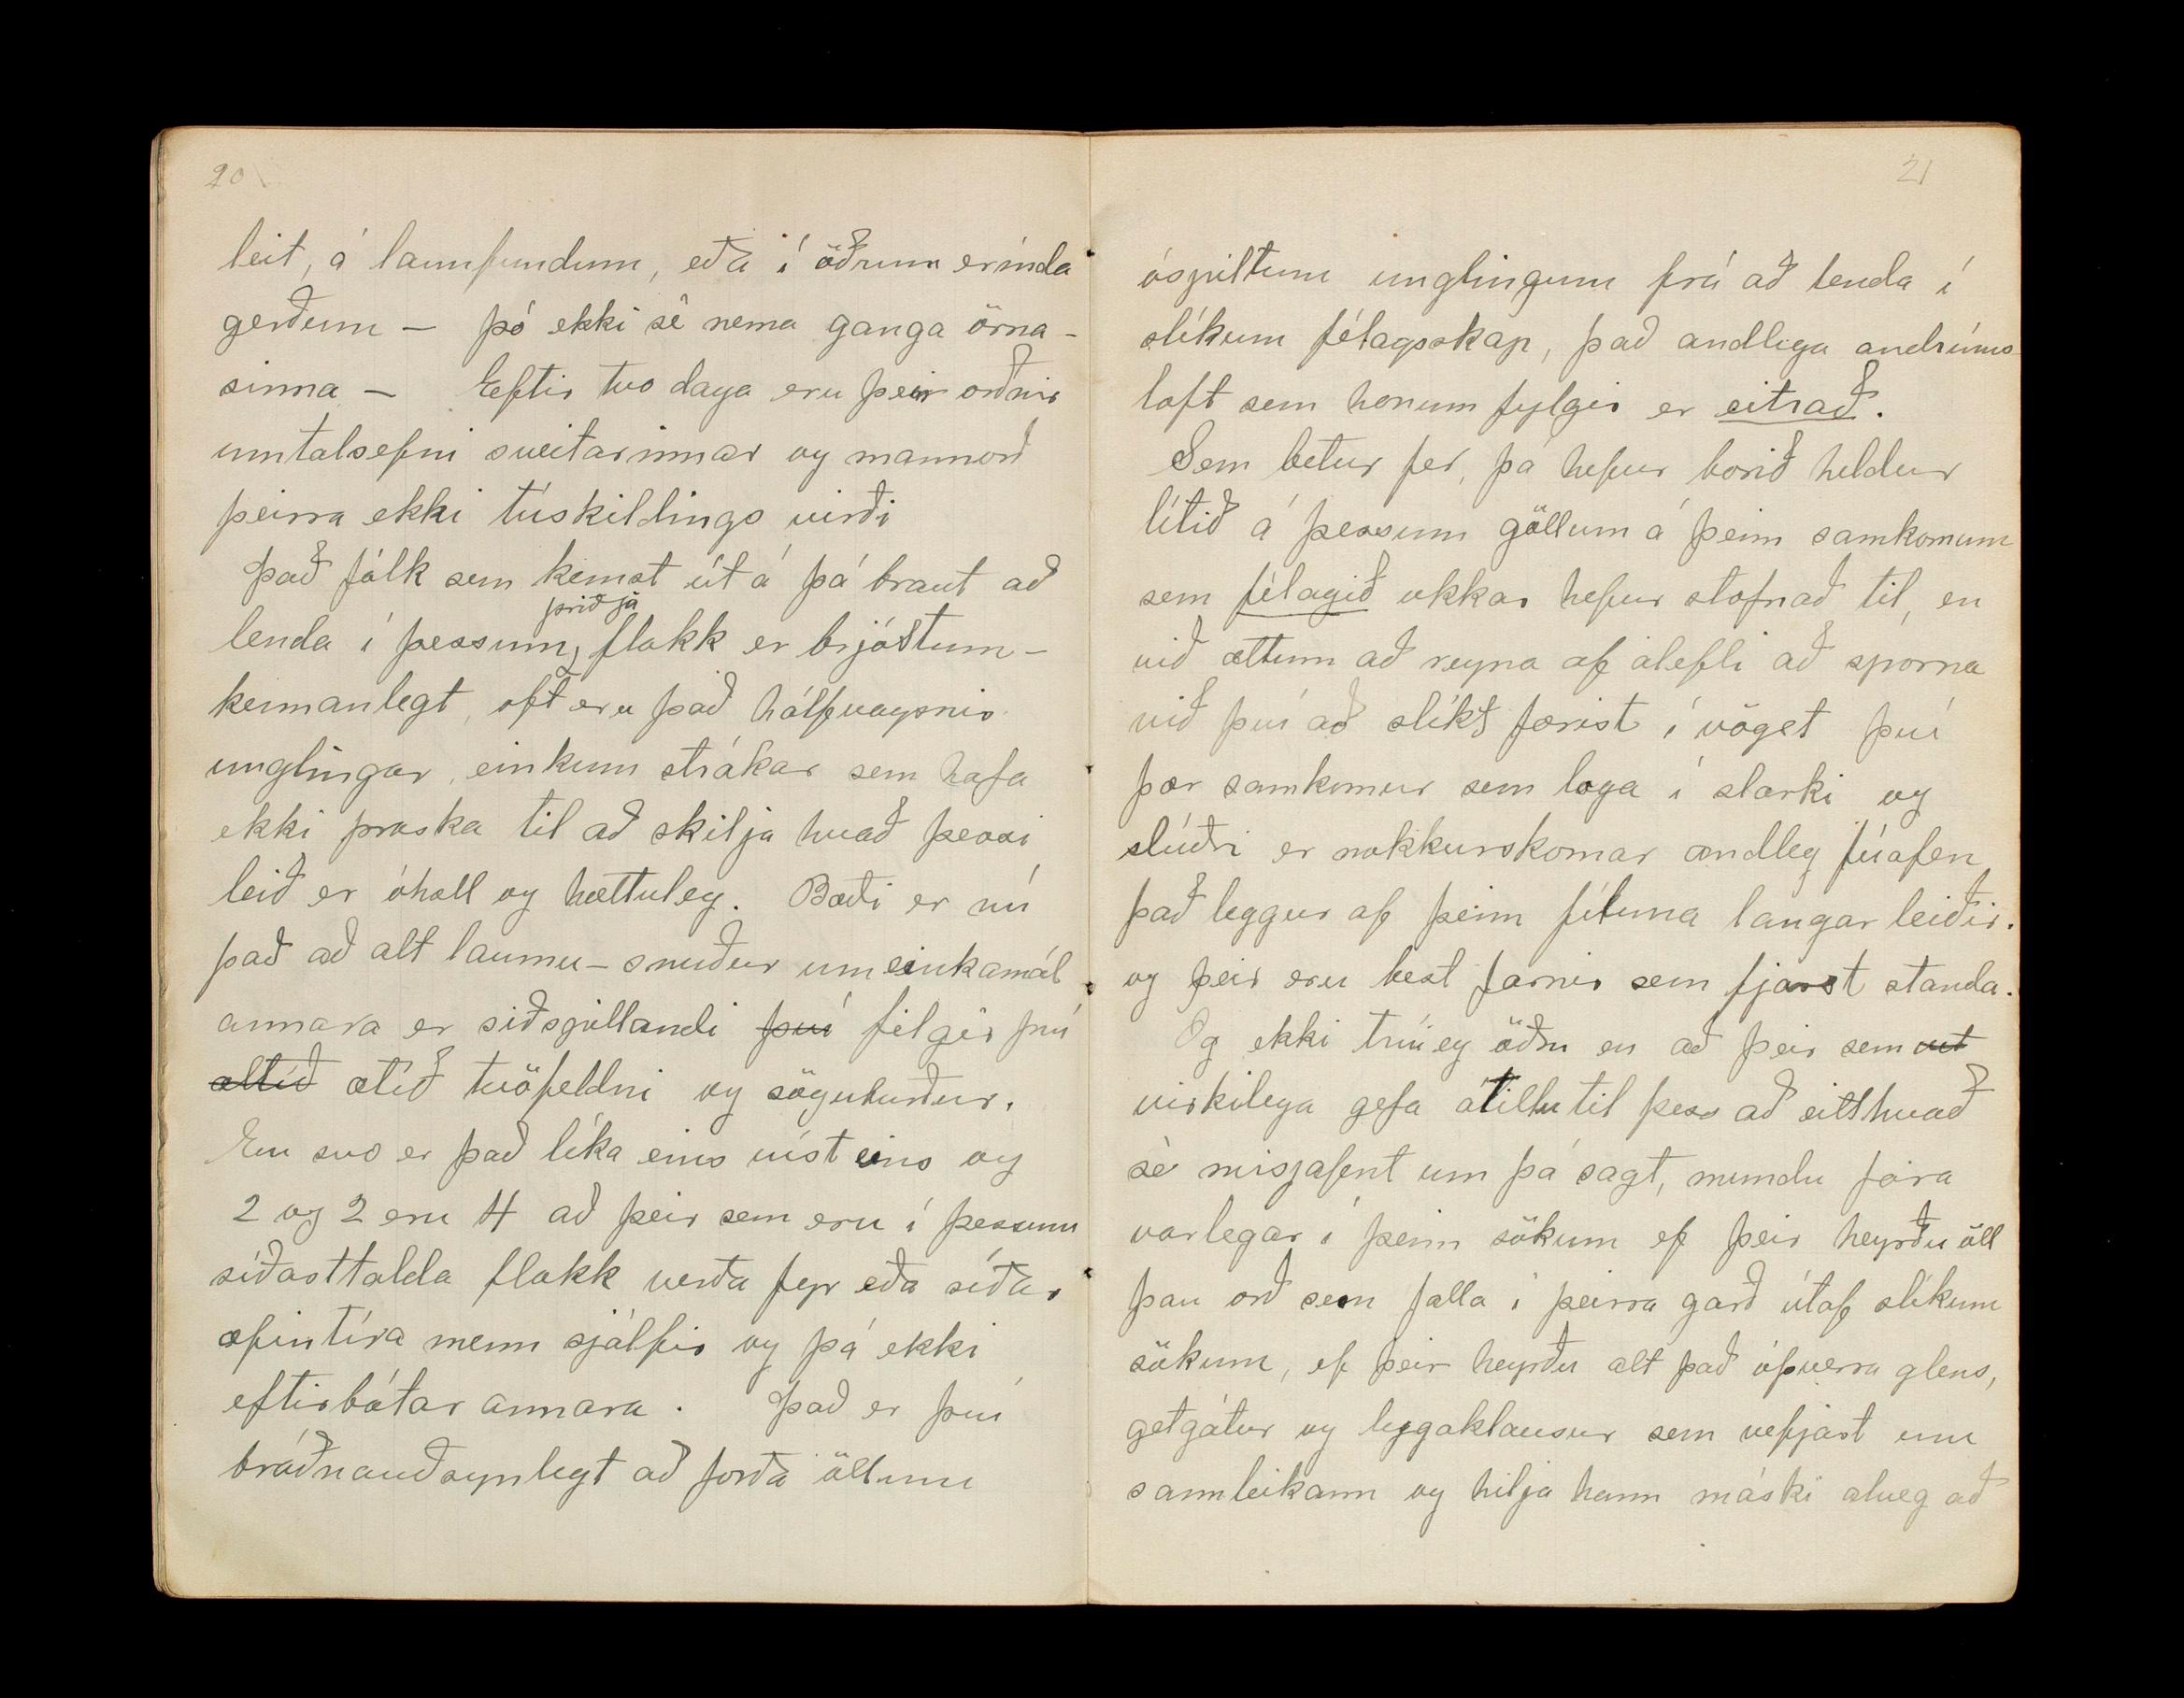 20
leit, á launfundum, eða í öðrum erinda
gerðum – þó ekki sé nema ganga örna-
sinna – Eftir tvo daga eru þeir orðnir
umtalsefni sveitarinnar og mannorð
þeirra ekki túskildings virði
Það fólk sem kemst út á þá braut að
þriðja
lenda í þessum, flokk er brjóstum-
kennanlegt, oft eru það hálfvaxnir
unglingar, einkum strákar sem hafa
ekki þroska til að skilja hvað þessi
leið er óholl og hættuleg. Bæði er nú
það að alt laumu-snuður um einkamál
annara er siðspillandi því filgir því
altíð ætíð tvöfeldni og söguburður.
En svo er það líka eins víst eins og
2 og 2 eru 4 að þeir sem eru í þessum
síðasttalda flokk verða fyr eða síðar
æfintíra menn sjálfir og þá ekki
eftirbátar annara. Það er því
bráðnauðsynlegt að forða öllum
21
óspiltum unglingum frá að lenda í
slíkum félagsskap, það andlega andrúms-
loft sem honum fylgir er eitrað.
Sem betur fer, þá hefur borið heldur
lítið á þessum göllum á þeim samkomum
sem félagið okkar hefur stofnað til, en
við ættum að reyna af alefli að sporna
við því að slíkt færist í vöget því
þær samkomur sem loga í slarki og
slúðri er nokkurskonar andleg fúafen
það leggur af þeim fíluna langar leiðir.
og þeir eru best farnir sem fjarst standa.
Og ekki trúi eg öðru en að þeir sem vit
virkilega gefa átillu til þess að eitthvað
sé misjafnt um þá sagt, mundu fara
varlegar í þeim sökum ef þeir heyrðu öll
þau orð sem falla í þeirra garð útaf slíkum
sökum, ef þeir heyrðu alt það óþverra glens,
getgátur og lygaklausur sem vefjast um
sannleikann og hilja hann máski alveg að